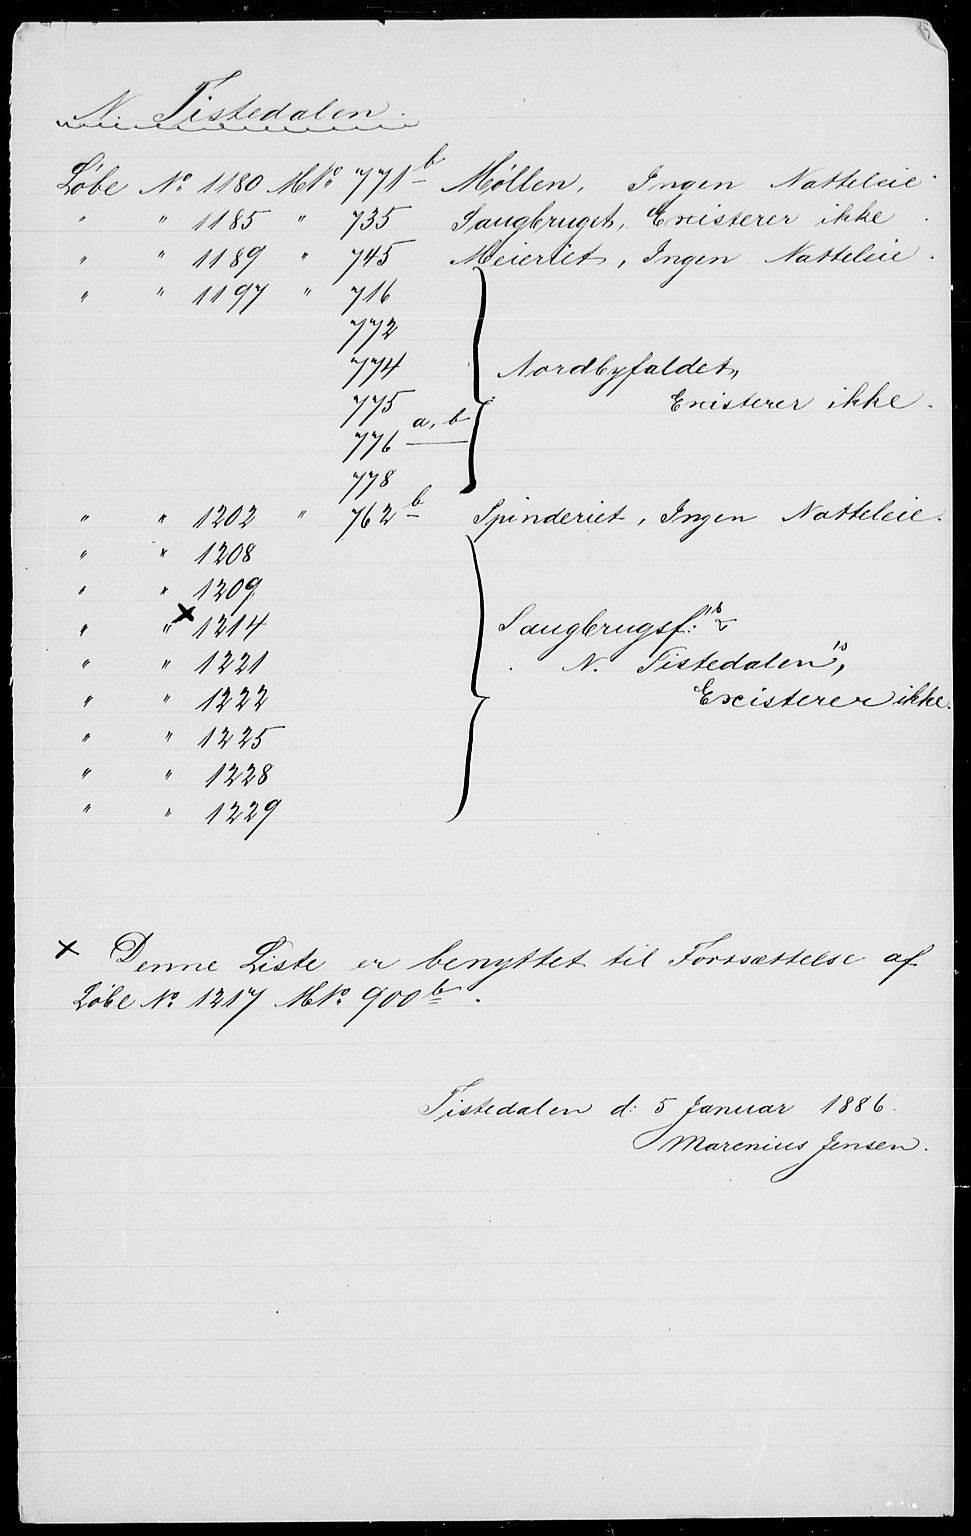 N. Tistedalen.
Løbe No 1180 MNo 771 b Møllen, Ingen Natteleie.
" " 1185 " 735 Saugbruget, Existerer ikke.
" " 1189 " 745 Meieriet, Ingen Natteleie.
" " 1197 " 716
772
774 Nordbyfaldet,
775 Existerer ikke.
776 a, b
778
" " 1202 " 762 b Spinderiet, Ingen Natteleie.
" " 1208
" " 1209
" " × 1214 Saugbrugsf:
" " 1221 N. Tistedalen",
" " 1222 Existerer ikke.
" " 1225
" " 1228
" " 1229
× Denne Liste er benyttet til Fortsættelse af
Løbe No 1217 MNo 900 b.
Tistedalen d: 5 Januar 1886.
Marenius Jensen.